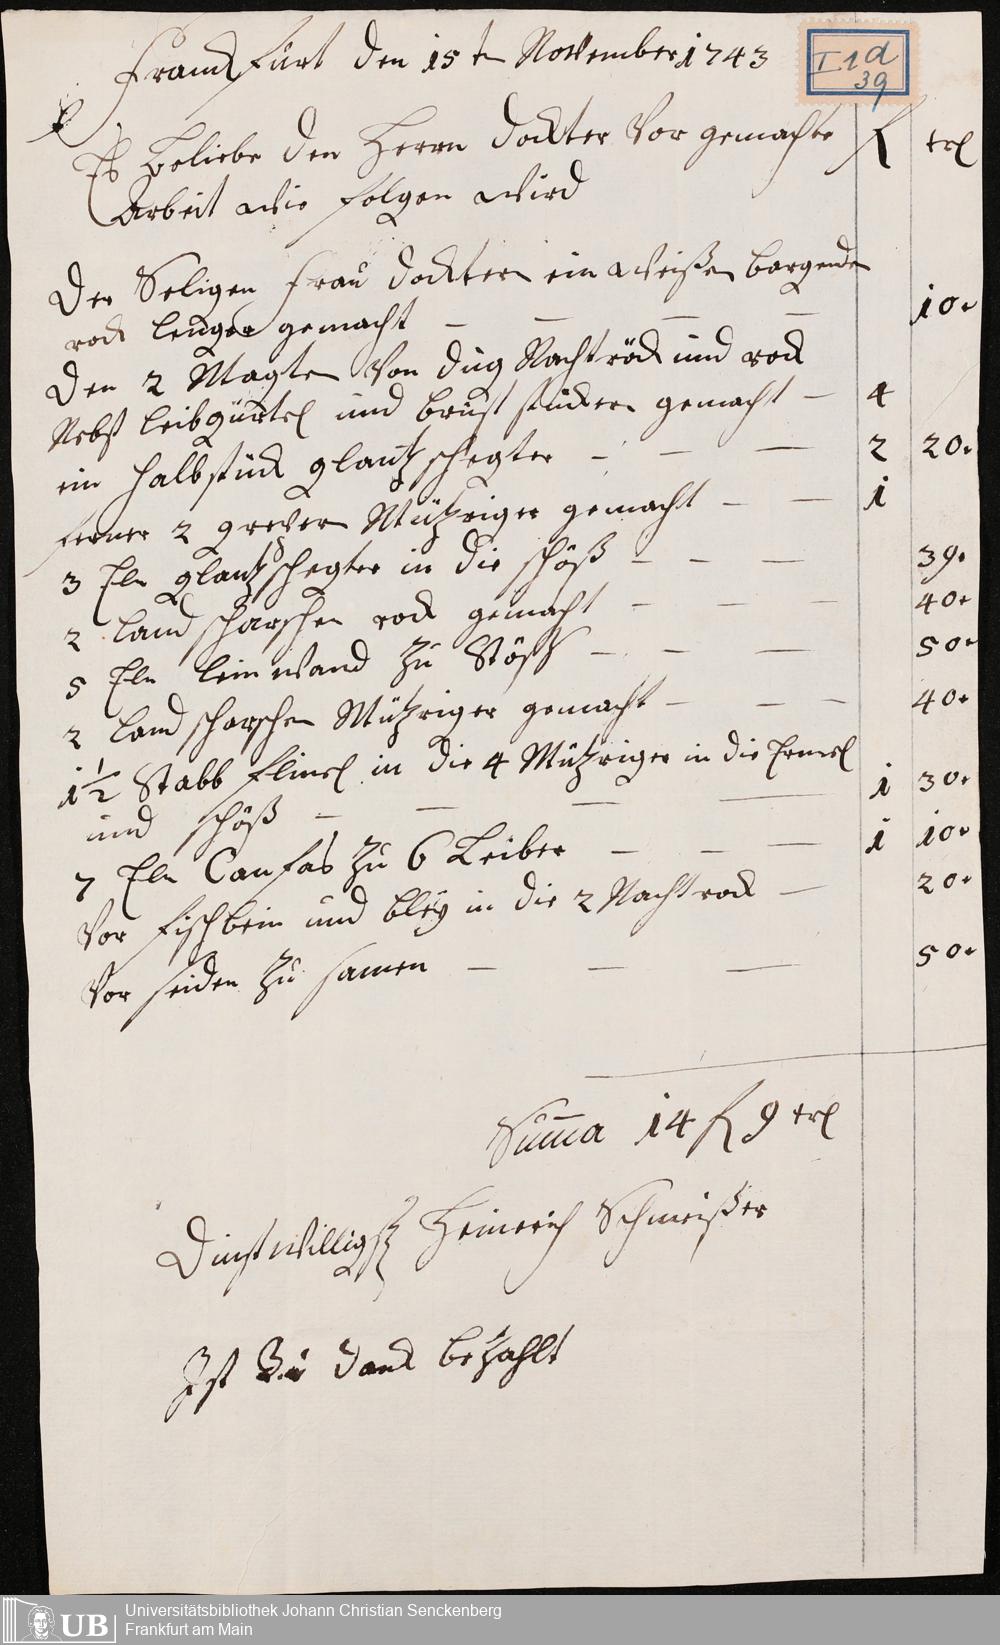 Franckfurt den 15 t November 1743
I 1 d
39
Es beliebe den Herrn dockter Vor gemachte f xrl
Arbeit wie folgen wird
Der Seligen frau dockter ein weissen bargenden
rock lenger gemacht — — — — 10.
Den 2 Magte Von Zug Nachtröck und rock
Nebst leibgürtel und brust stücker gemacht — 4
ein halbstück glantz schegter — — — 2 20.
ferner 2 grever Mützriger gemacht — — 1
3 Eln glantz schegter in die schöß — — — 39.
2 land scharschen rock gemacht — — — 40.
5 Eln leinwand zu Stöß — — — 50.
2 land scharschen Mützriger gemacht — — — 40.
1 1/2 Stabb flinel in die 4 Mützriger in die Ermel
und schöß — — — — 1 30.
7 Eln Canfas zu 6 Leiber — — — 1 10.
Vor fischbein und bley in die 2 Nachtrock — 20.
Vor seiden zu samen — — — 50.
Summa 14 f 9 xrl
Dinstwilligst Heinrich Schmeisser
Ist Zu danck bezahlt
UB
Universitätsbibliothek Johann Christian Senckenberg
Frankfurt am Main